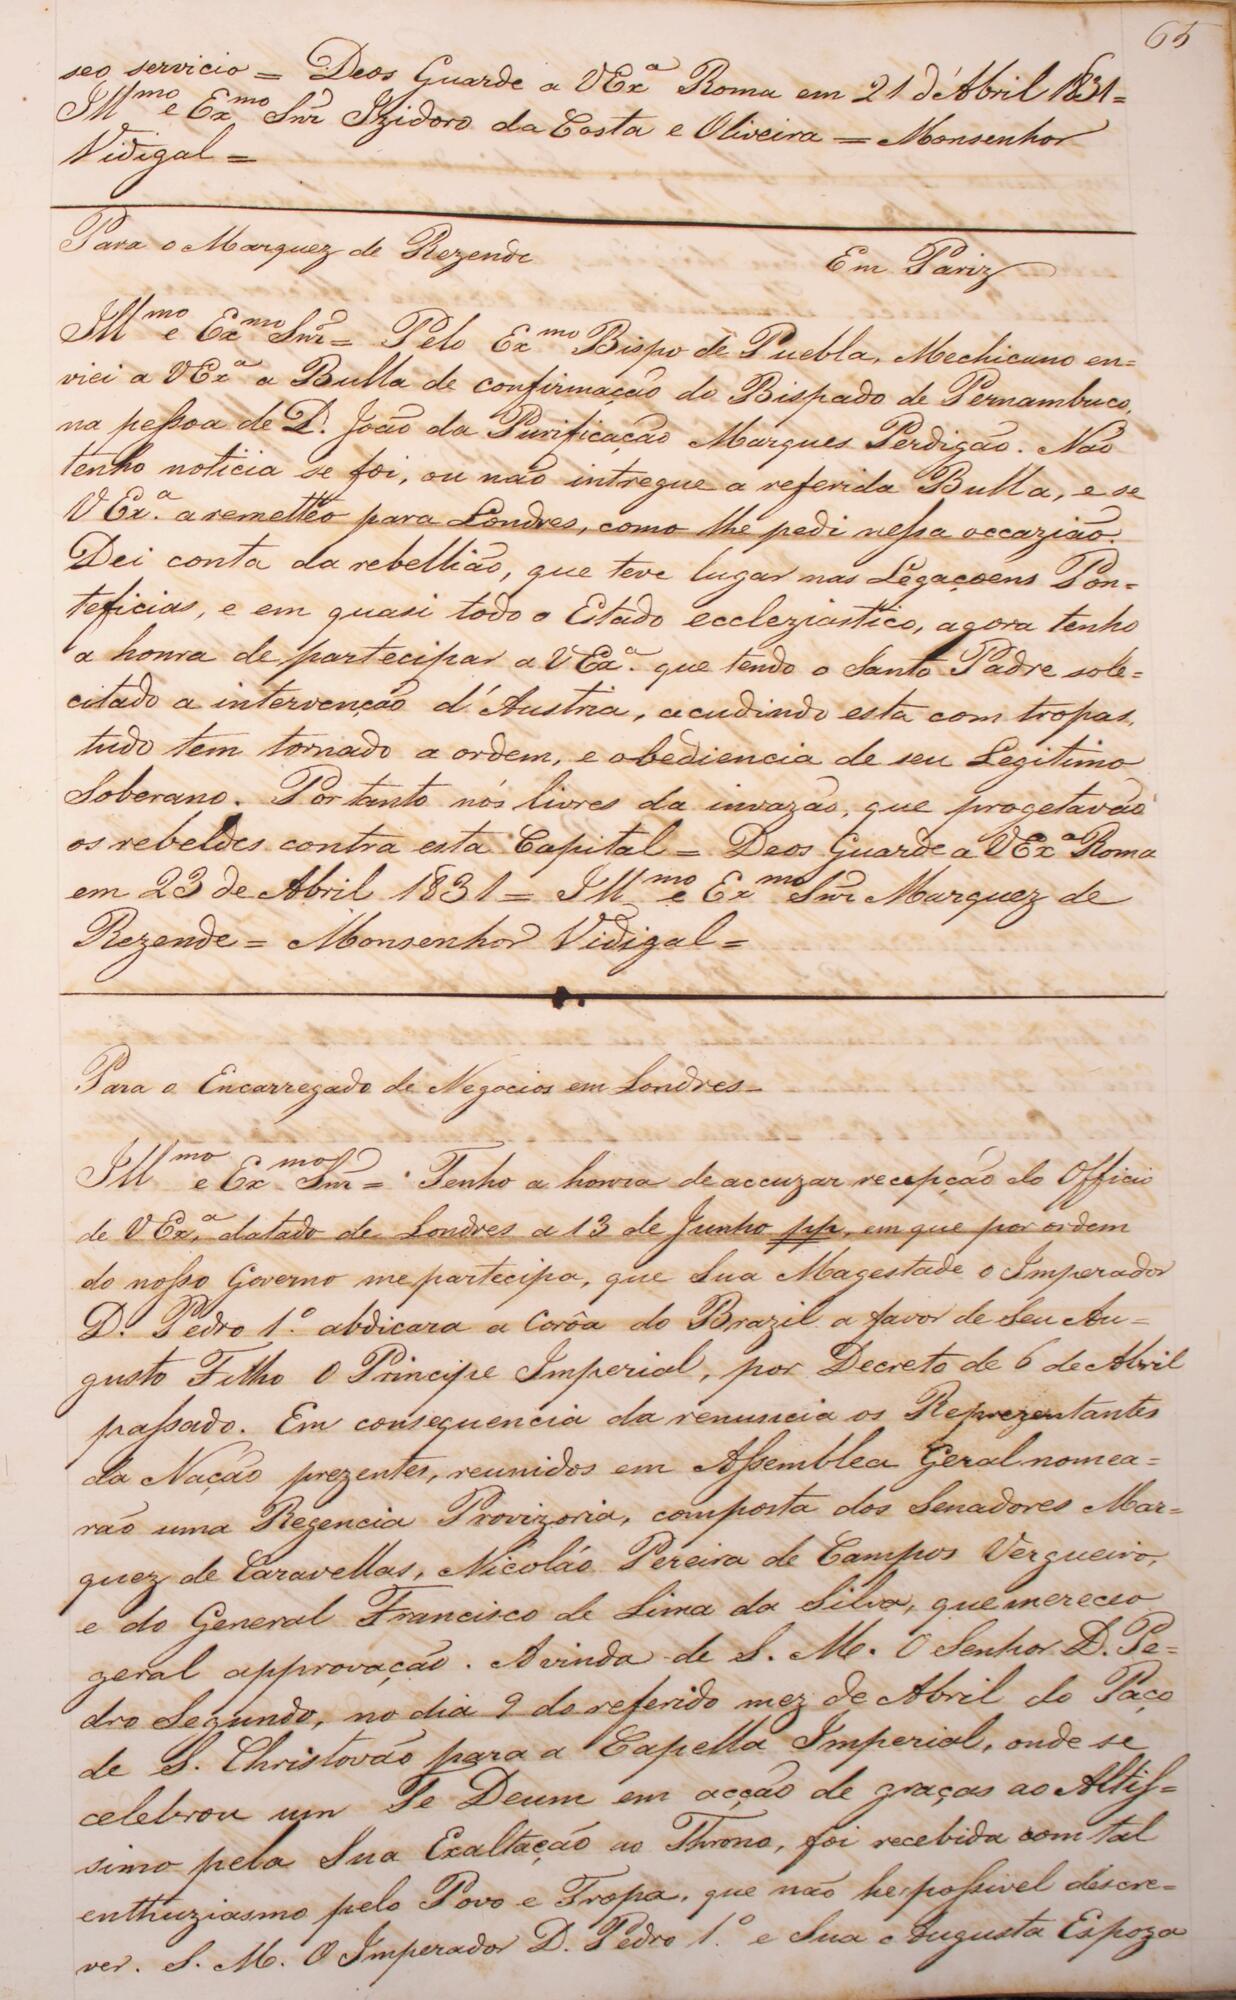 65
seo servicio = Deos Guarde a VEx.ª Roma em 21 d'Abril 1831=
Ill.mo e Ex.mo Snr Izidoro da Costa e Oliveira = Monsenhor
Vidigal =
Para o Marquez de Rezende Em Pariz
Ill.mo e Ex.mo Snr = Pelo Ex.mo Bispo de Puebla, Mechicano en=
viei a VEx.ª a Bulla de confirmação do Bispado de Pernambuco,
na peſsoa de D. João da Purificação Marques Perdigão. Não
tenho noticia se foi, ou não intregue a referida Bulla, e se
VEx.ª a remetteo para Londres, como lhe pedi neſsa occazião.
Dei conta da rebellião, que teve lugar nas Legaçoens Pon=
teficias, e em quasi todo o Estado eccleziastico, agora tenho
a honra de partecipar a VEx.ª que tendo o Santo Padre sole=
citado a intervenção d'Austria, acudindo esta com tropas,
tudo tem tornado a ordem, e obediencia de seu Legitimo
Soberano. Por tanto nós livres da invazão, que progetavão
os rebeldes contra esta Capital = Deos Guarde a VEx.ª Roma
em 23 de Abril 1831 = Ill.mo e Ex.mo Snr Marquez de
Rezende = Monsenhor Vidigal =
Para o Encarregado de Negocios em Londres =
Ill.mo e Ex.mo Snr = Tenho a honra de accuzar recepção do Officio
de VEx.ª datado de Londres a 13 de Junho pp, em que por ordem
do noſso Governo me partecipa, que Sua Magestade o Imperador
D. Pedro 1.º abdicara a Corôa do Brazil a favor de Seu Au=
gusto Filho O Principe Imperial, por Decreto de 6 de Abril
paſsado. Em consequencia da renuncia os Reprezentantes
da Nação prezentes, reunidos em Aſsemblea Geral nomea=
rão uma Regencia Provizoria, composta dos Senadores Mar=
quez de Caravellas, Nicoláo Pereira de Campos Vergueiro,
e do General Francisco de Lima da Silva, que mereceo
geral approvação. A vinda de S. M. O Senhor D. Pe=
dro Segundo, no dia 9 do referido mez de Abril do Paço
de S. Christovão para a Capella Imperial, onde se
celebrou um Te Deum em acção de graças ao Altiſ=
simo pela Sua Exaltação ao Throno, foi recebida com tal
enthuziasmo pelo Povo e Tropa, que não he poſsivel descre=
ver. S. M. O Imperador D. Pedro 1.º e Sua Augusta Espoza